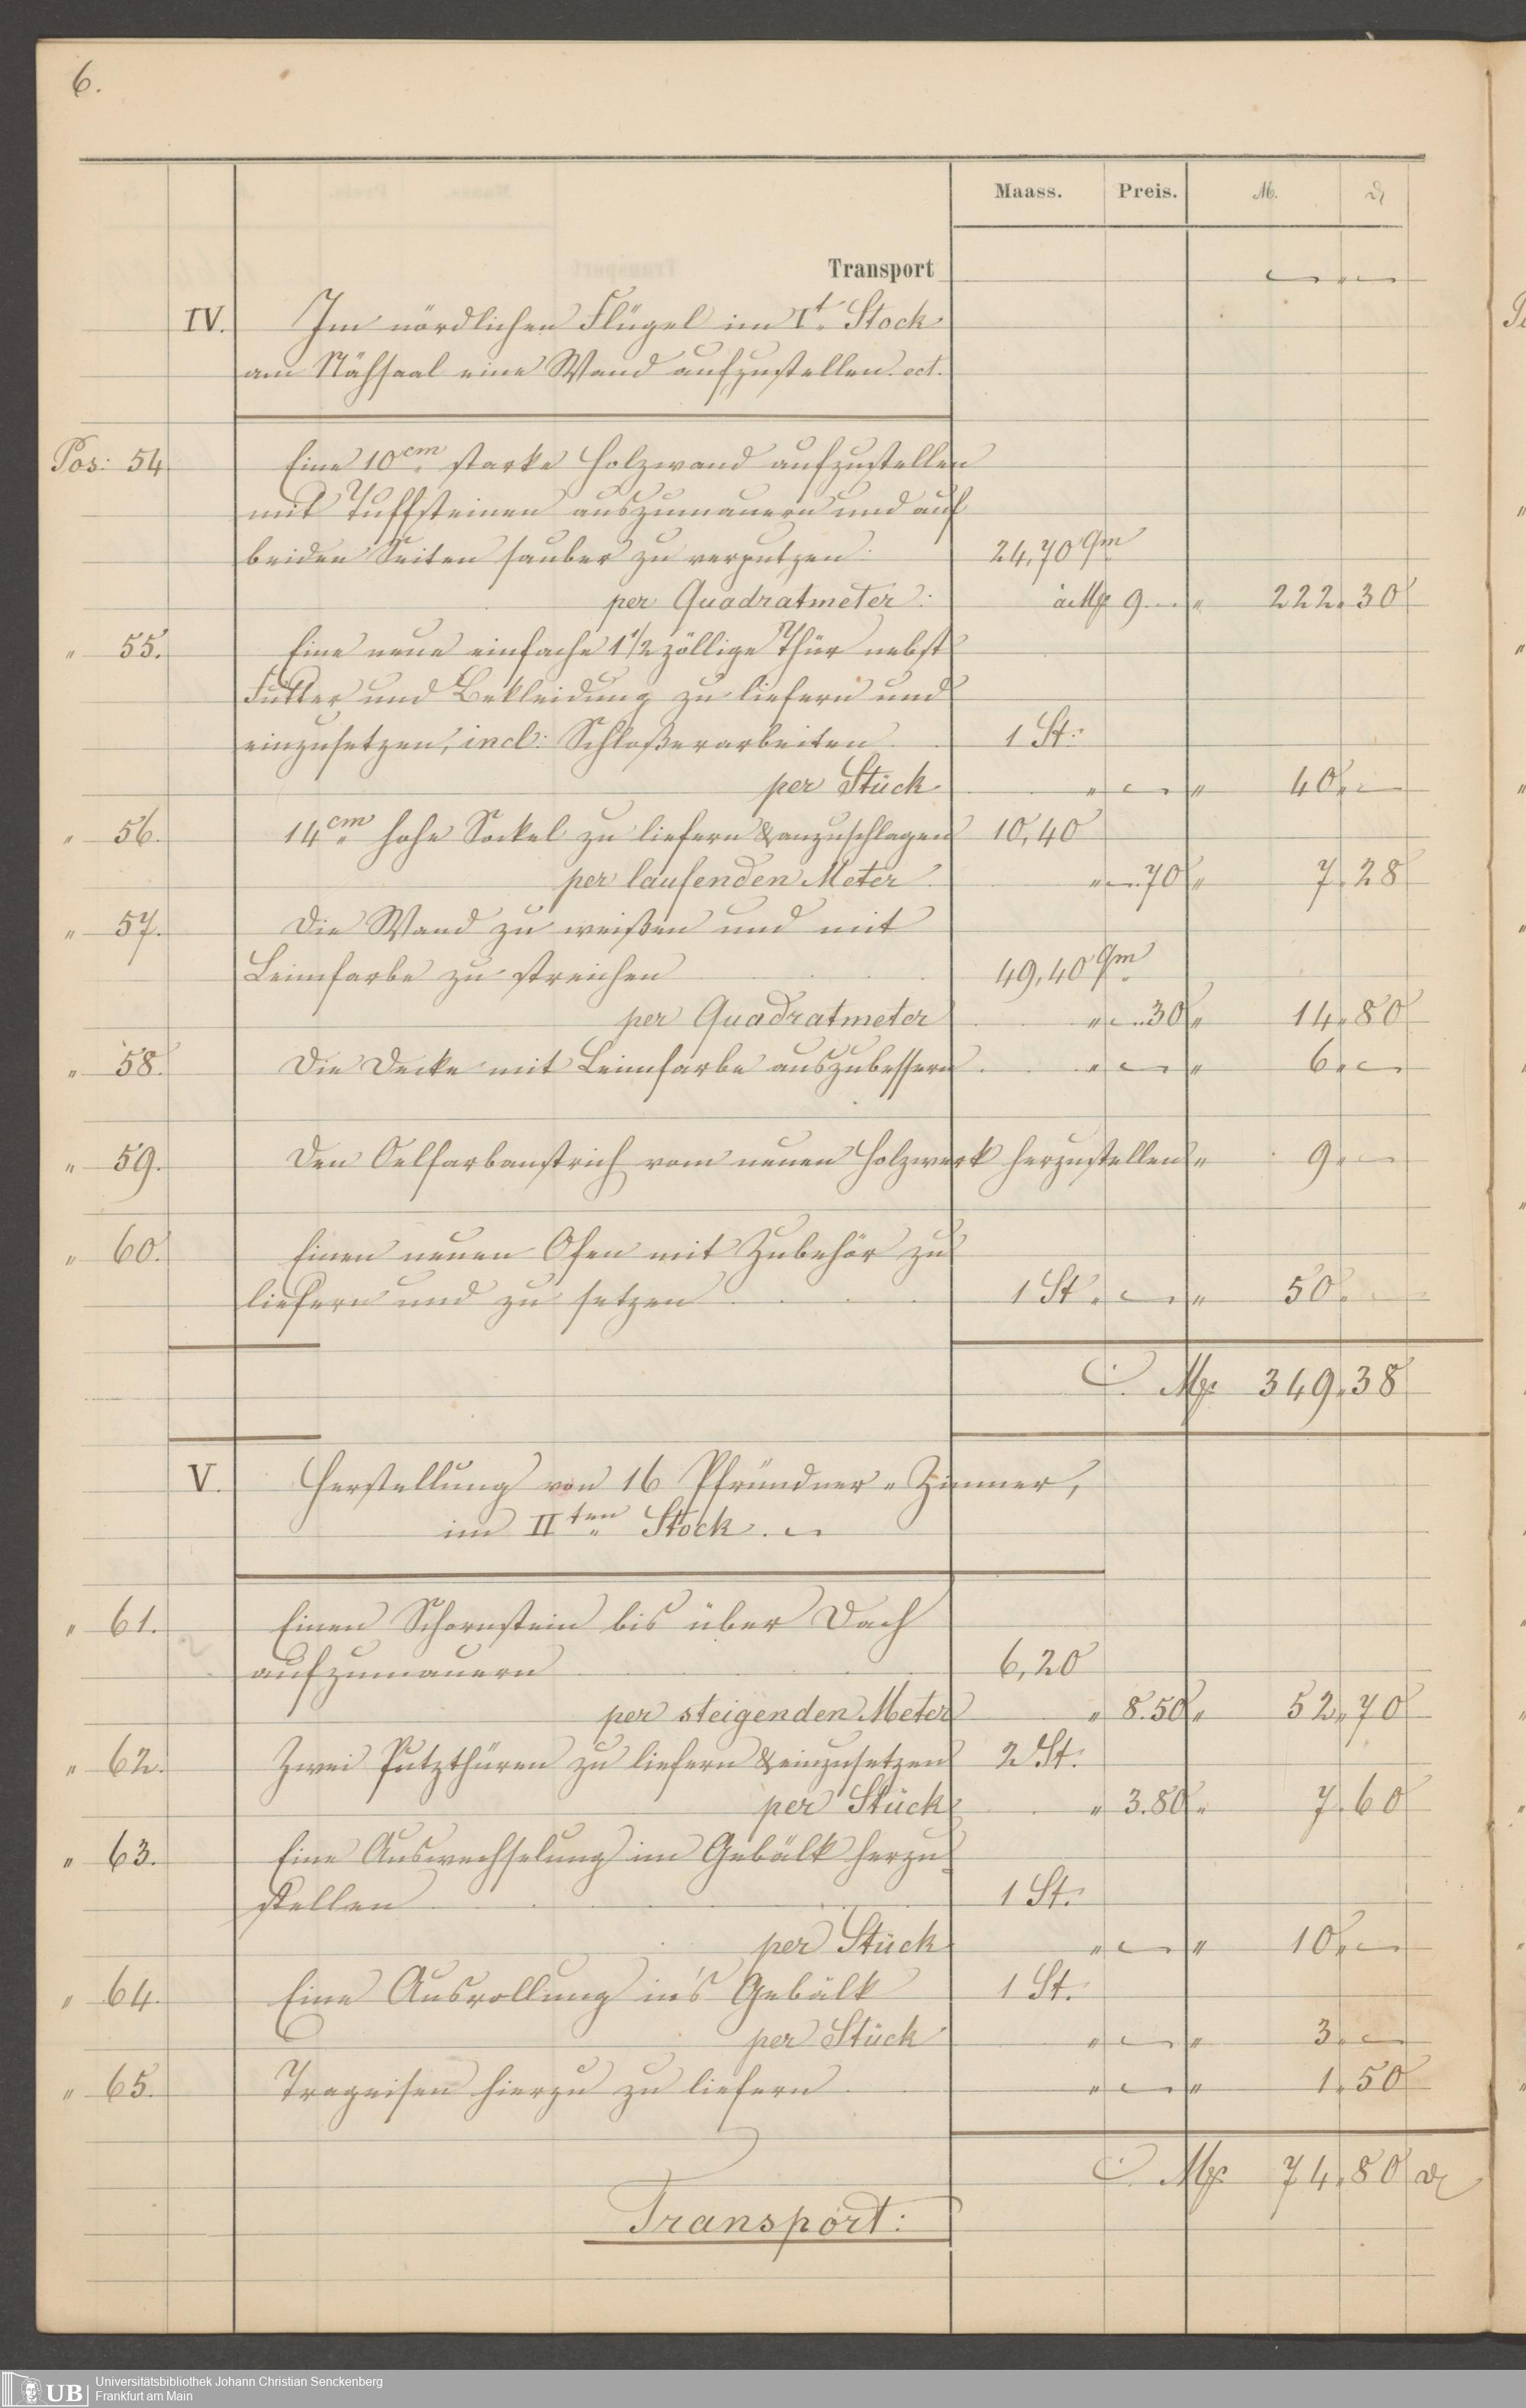 6.
Maass. Preis. M. ₰
Transport
IV. Im nördlichen Flügel im It. Stock
am Nähsaal eine Wand aufzustellen ect.
Pos: 54 Eine 10cm starke Holzwand aufzustellen
mit Tuffsteinen auszumauern und auf
beiden Seiten sauber zu verputzen. 24,70 qm
per Quadratmeter: à Mk 9.— " 222.30
" 55. Eine neue einfache 1 1/2 zöllige Thür nebst
Futter und Bekleidung zu liefern und
einzusetzen, incl: Schloßerarbeiten 1 St.
per Stück " — " 40.—
" 56. 14cm hohe Sockel zu liefern & anzuschlagen 10,40
per laufenden Meter " —.70 " 7.28
" 57. Die Wand zu weißen und mit
Leimfarbe zu streichen 49,40 qm
per Quadratmeter " —.30 " 14.80
" 58. Die Decke mit Leimfarbe auszubessern " — " 6.—
" 59. Den Oelfarbanstrich vom neuen Holzwerk herzustellen " 9.—
" 60. Einen neuen Ofen mit Zubehör zu
liefern und zu setzen 1 St. — " 50.
Mk 349.38
V. Herstellung von 16 Pfründner-Zimmer,
im IIten Stock. —
" 61. Einen Schornstein bis über Dach
aufzumauern 6,20
per steigenden Meter " 8.50 " 52.70
" 62. Zwei Putzthüren zu liefern & einzusetzen 2 St.
per Stück " 3.80 " 7.60
" 63. Eine Auswechselung im Gebälk herzu-
stellen 1 St.
per Stück " — " 10.—
" 64. Eine Ausrollung in's Gebälk 1 St.
per Stück " — " 3.—
" 65. Trageisen hierzu zu liefern " — " 1.50
Mk 74.80 ₰
Transport:
UB Universitätsbibliothek Johann Christian Senckenberg
Frankfurt am Main